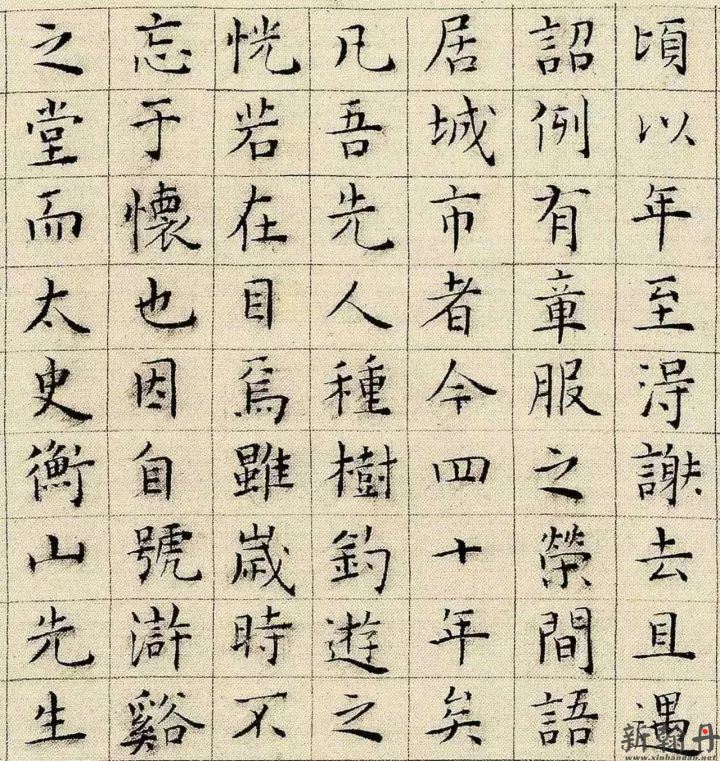 頃以年至得謝去且遇
詔例有章服之榮間語
居城市者今四十年矣
凡吾先人種樹釣遊之
恍若在目焉雖歲時不
忘于懷也因自號滸谿
之堂而太史衡山先生
新邯丹
www.xinhandan.net